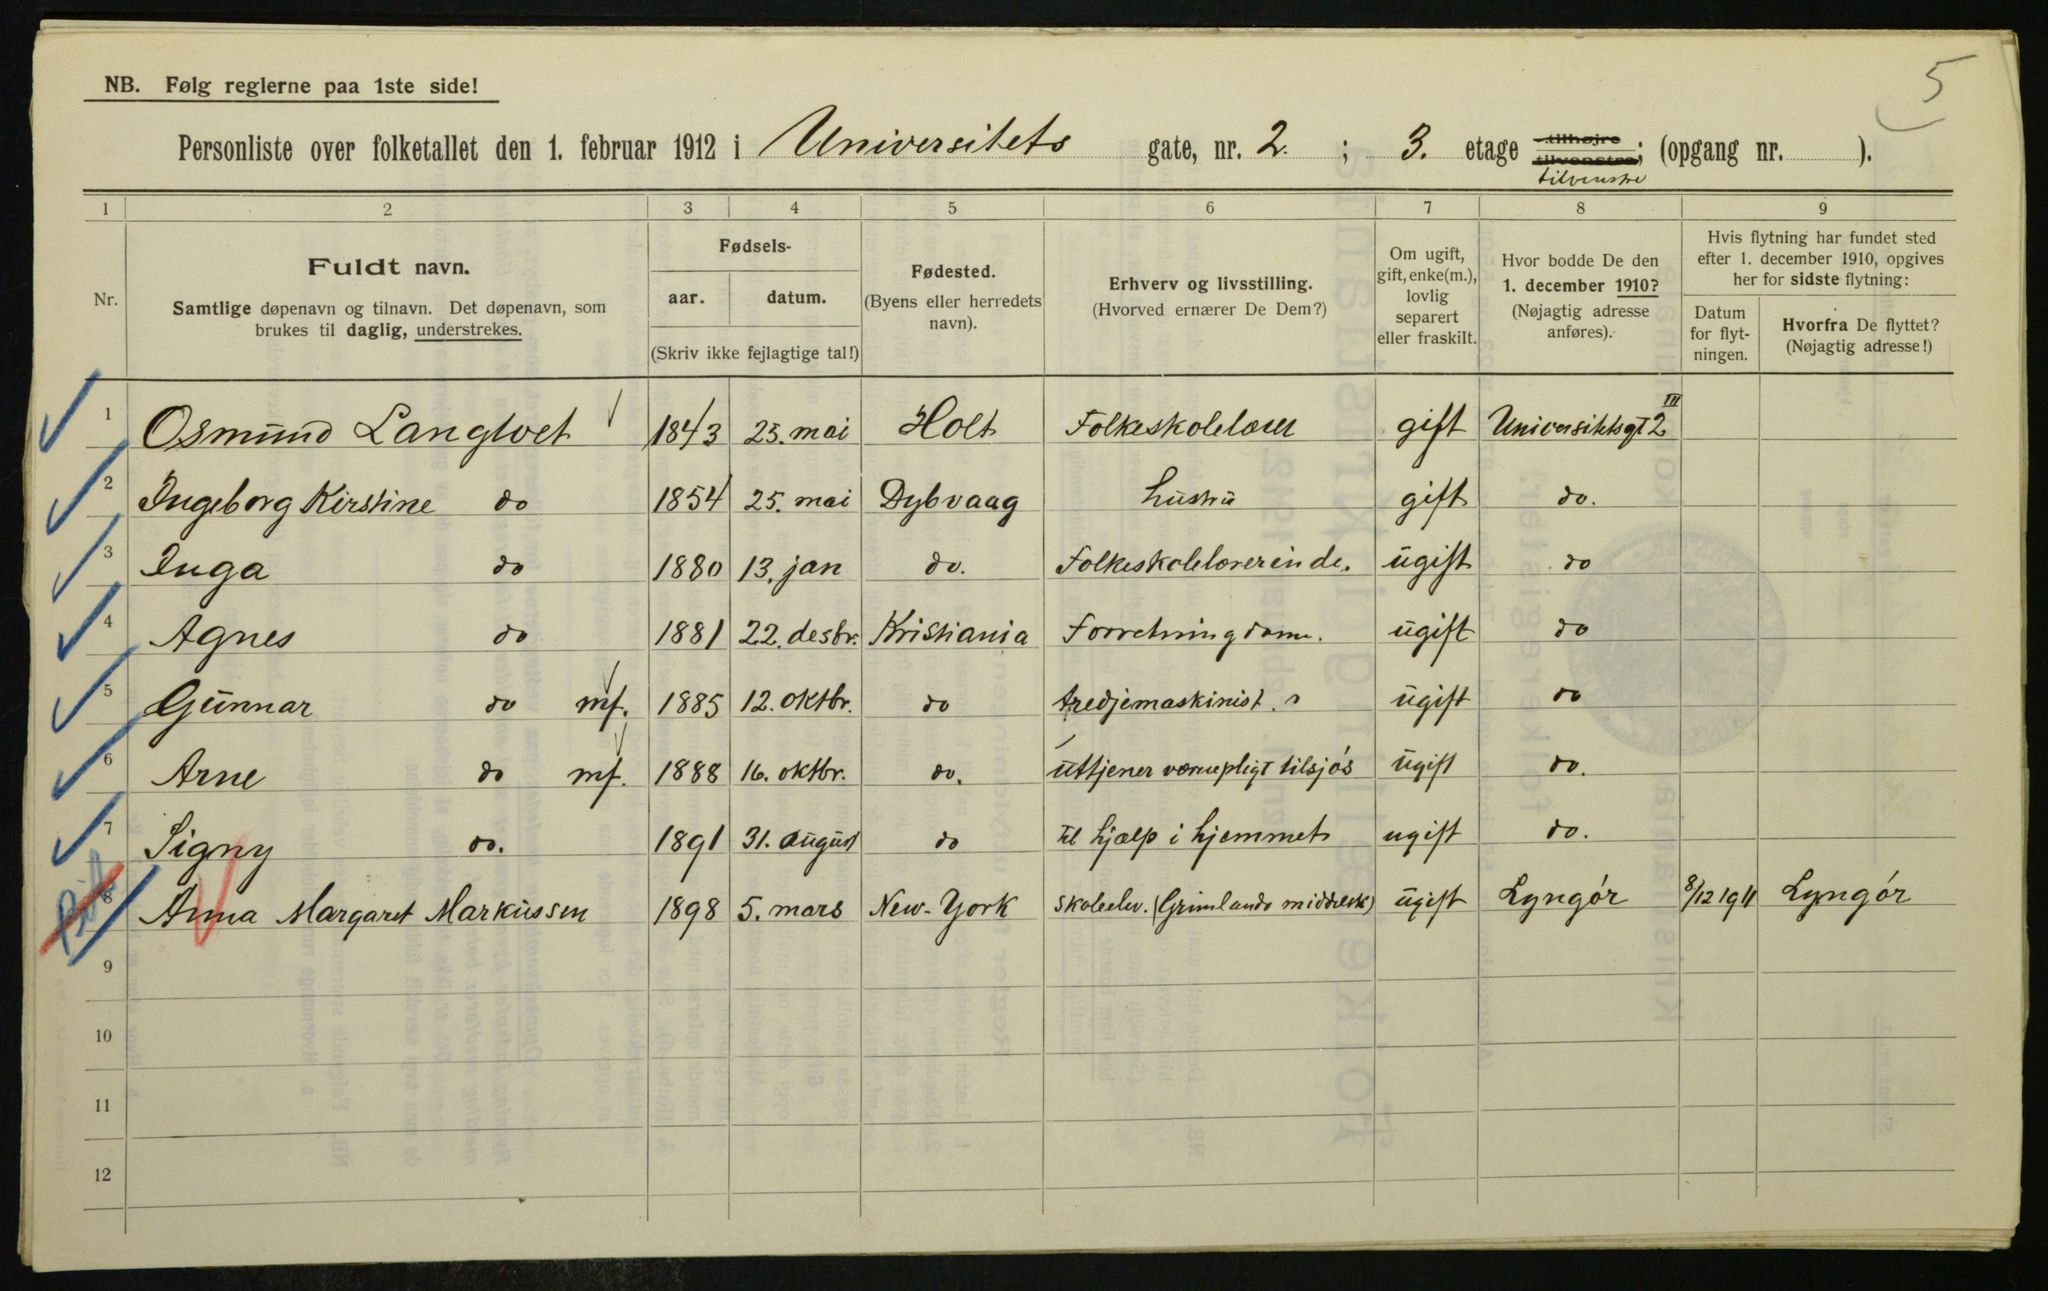 5
NB. Følg reglerne paa 1ste side!
Personliste over folketallet den 1. februar 1912 i Universitets gate, nr. 2. ; 3. etage tilhøjre tilvenstre; (opgang nr. ).
tilvenstre
1 2 3 4 5 6 7 8 9
Nr.
Fuldt navn.
Samtlige døpenavn og tilnavn. Det døpenavn, som
brukes til daglig, understrekes.
Fødsels-
aar. datum.
(Skriv ikke fejlagtige tal!)
Fødested.
(Byens eller herredets
navn).
Erhverv og livsstilling.
(Hvorved ernærer De Dem?)
Om ugift,
gift, enke(m.),
lovlig
separert
eller fraskilt.
Hvor bodde De den
1. december 1910?
(Nøjagtig adresse
anføres).
Hvis flytning har fundet sted
efter 1. december 1910, opgives
her for sidste flytning:
Datum
for flyt-
ningen.
Hvorfra De flyttet?
(Nøjagtig adresse!)
1 Osmund Langtvet 1843 25. mai Holt Folkeskolelærer gift Universitetsgt 2 III
2 Ingeborg Kirstine do 1854 25. mai Dybvaag hustru gift do.
3 Inga do 1880 13. jan do. Folkeskolelærerinde. ugift do
4 Agnes do 1881 22. desbr. Kristiania Forretningsdame. ugift do
5 Gunnar do mf. 1885 12. oktbr. do tredjemaskinist. ugift do
6 Arne do mf. 1888 16. oktbr. do. uttjener værnepligt tilsjós ugift do.
7 Signy do. 1891 31. august do til hjælp i hjemmet ugift do.
8 Anna Margaret Markussen 1898 5. mars New-York skoleelev. (Grimlands middelsk) ugift Lyngór 8/12 1911 Lyngór
9
10
11
12